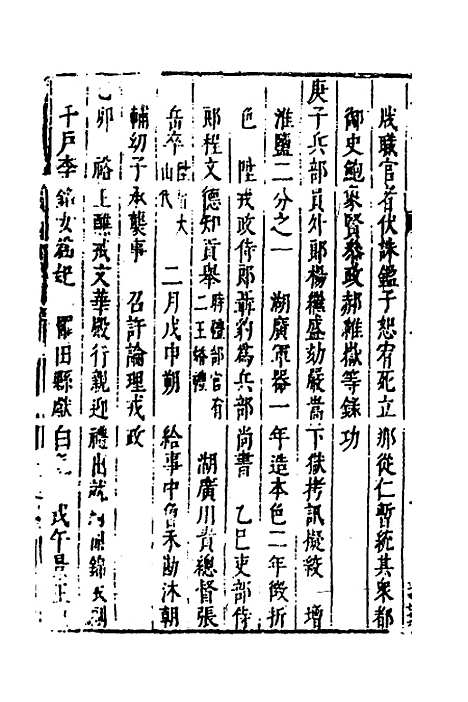 戕職官者伏誅鑑子恕宥死立那從仁暫統其衆都
御史鮑象賢叅政郝維嶽等錄功
庚子兵部員外郎楊繼盛劾嚴嵩下獄拷訊擬絞 增
淮鹽二分之一 湖廣軍器一年造本色二年徵折
色 陞戎政侍郎聶豹爲兵部尚書 乙巳吏部侍
郎程文德知貢舉時禮部官有二王婚禮 湖廣川貴總督張
岳卒 二月戊申朔 給事中魯 勘沐朝
輔幼子承襲事 召許論理戎政
卯 裕上醮戒文華殿行親迎禮出 錦衣
千戶李銘女 羅田縣獻白 戊午景王